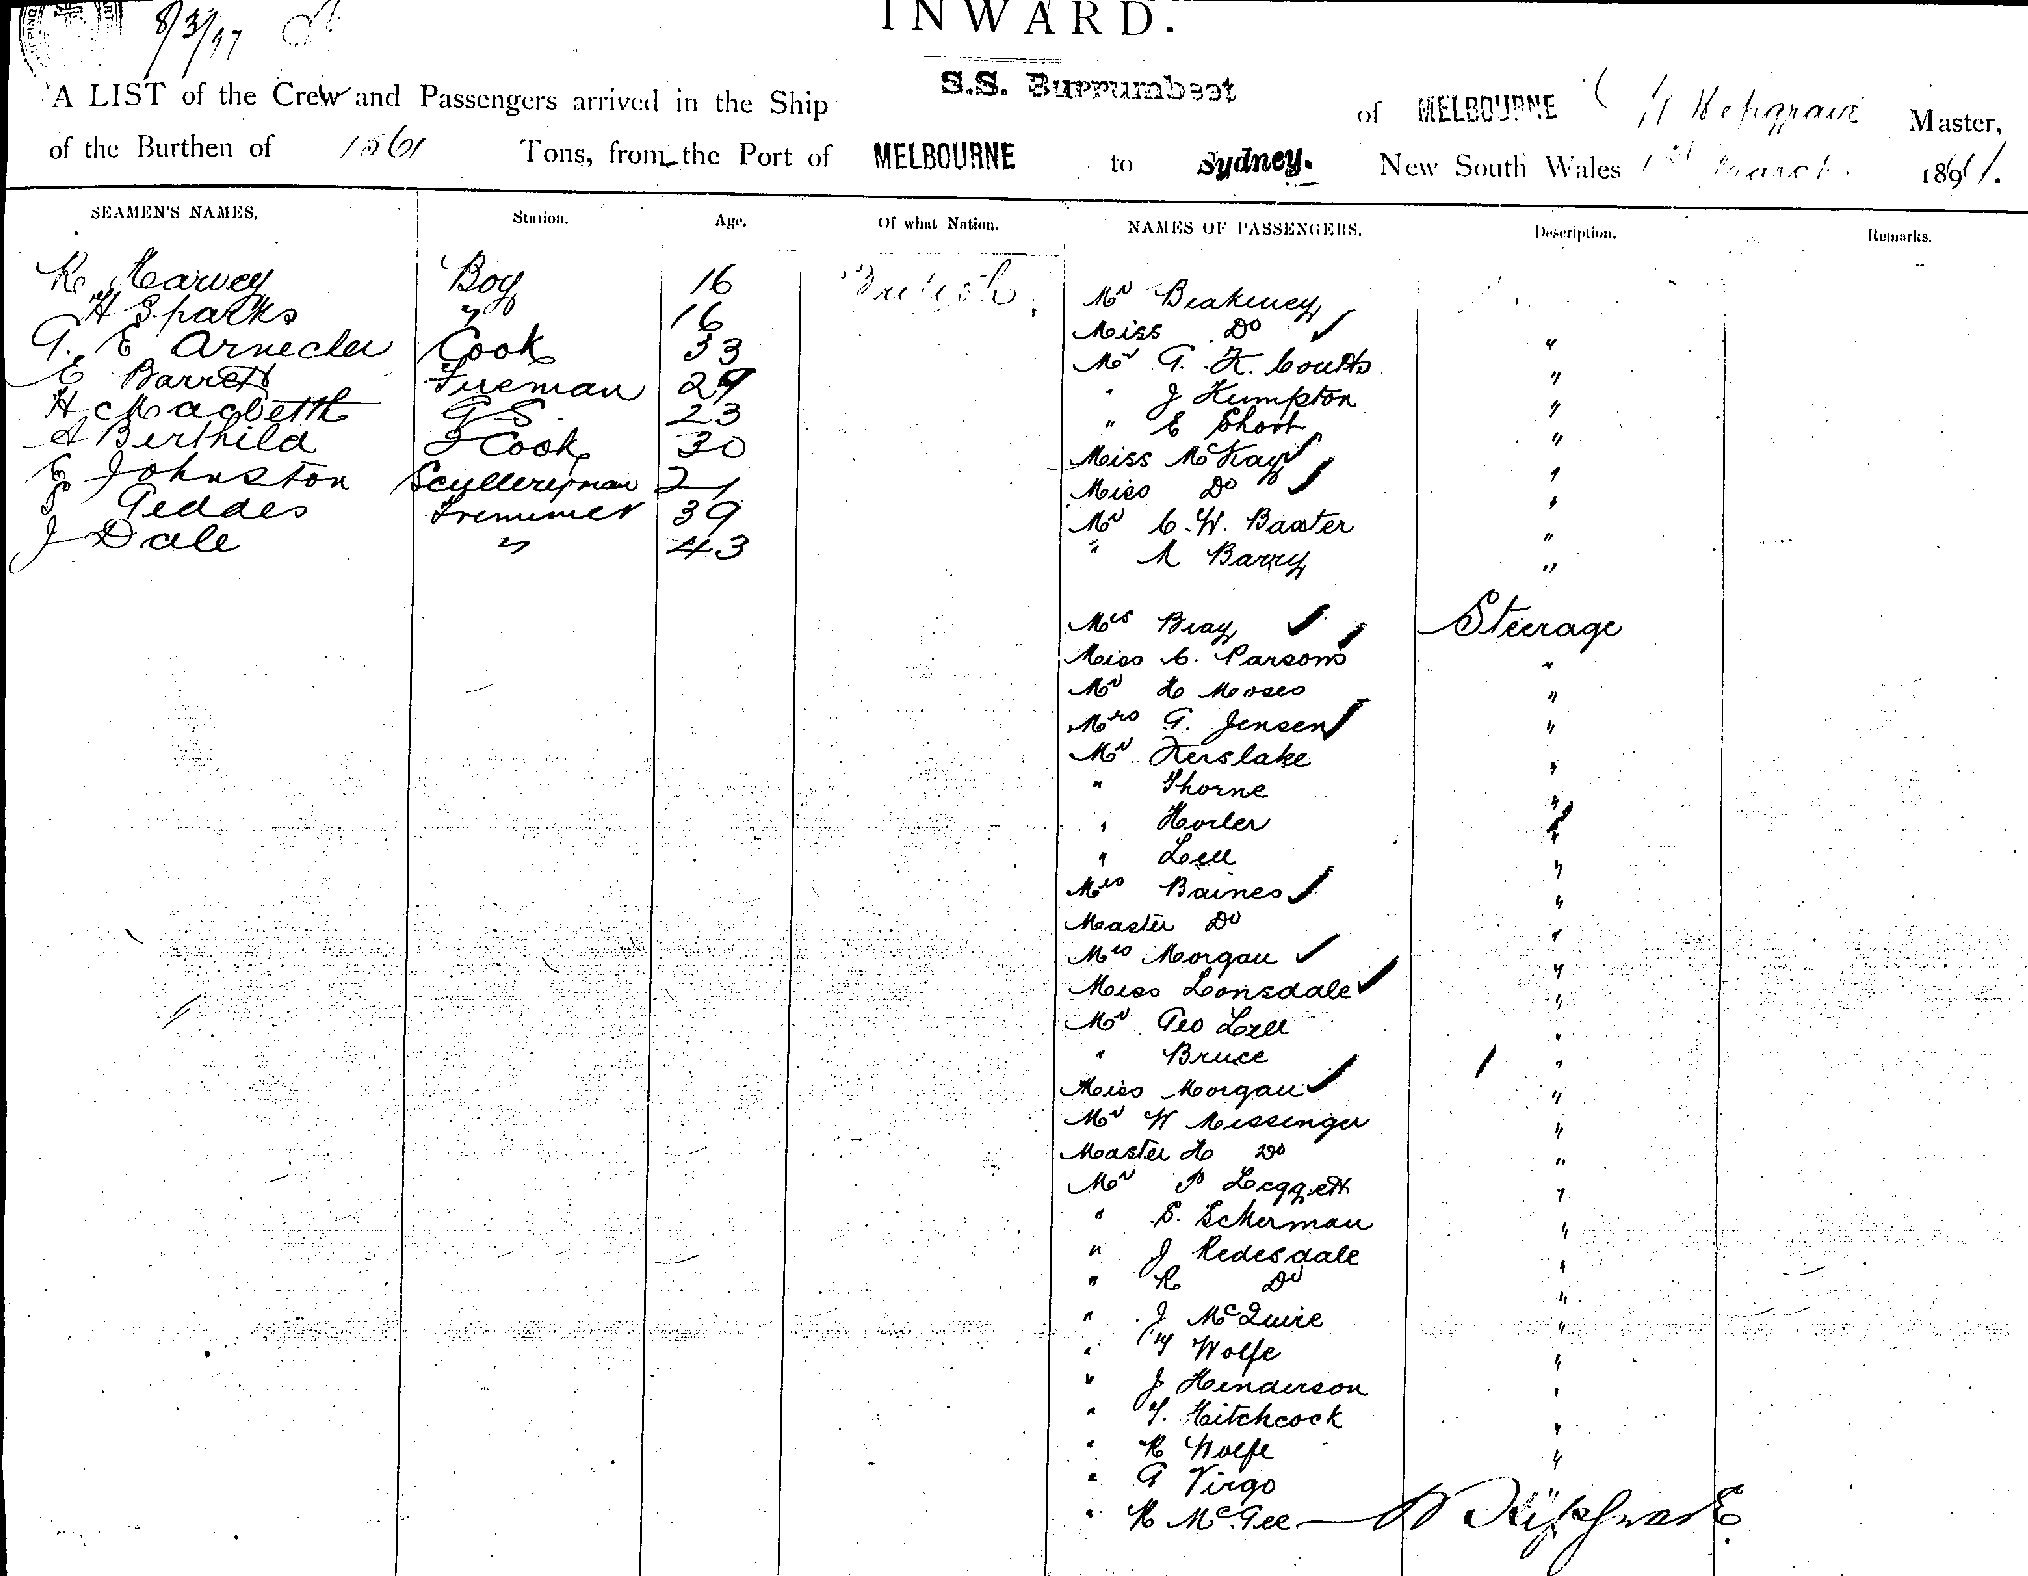 8/3/97
INWARD.
A LIST of the Crew and Passengers arrived in the Ship S.S. Burrumbeet of MELBOURNE Master,
of the Burthen of 1861 Tons, from the Port of MELBOURNE to Sydney. New South Wales 1st March 189
SEAMEN'S NAMES. Station. Age. Of what Nation. NAMES OF PASSENGERS. Description. Remarks.
R Harvey Boy 16 British
H Sparks " 16
G. E Cook 33
E Barrett Fireman 29
H Macbeth G S 23
A Berthild Cook 30
E Johnston Sculleryman 21
Geddes Trimmer 39
J Dale " 43
Mr Blakeney
Miss Do "
Mr G. K. Coutts "
" J Kumpton "
" E Short "
Miss McKay "
Miss Do "
Mr C. W. Baxter "
" A Barry "
Mrs Bray Steerage
Miss C. Parsons "
Mr H Moses "
Mrs G. Jensen "
Mr Kerslake "
" Thorne "
" Horler "
" Lell "
Mrs Baines "
Master Do "
Mrs Morgan "
Miss Lonsdale "
Mr Geo Lell "
" Bruce "
Miss Morgan "
Mr W Messenger "
Master H Do "
Mr P Leggett "
" E. Eckerman "
" J Redesdale "
" R Do "
" J McQuire "
" Wolfe "
" J Henderson "
" T. Hitchcock "
" R Wolfe "
" G Virgo "
" R McGee